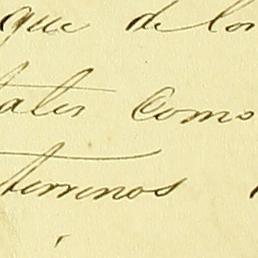 que de los
tales como
terrenos